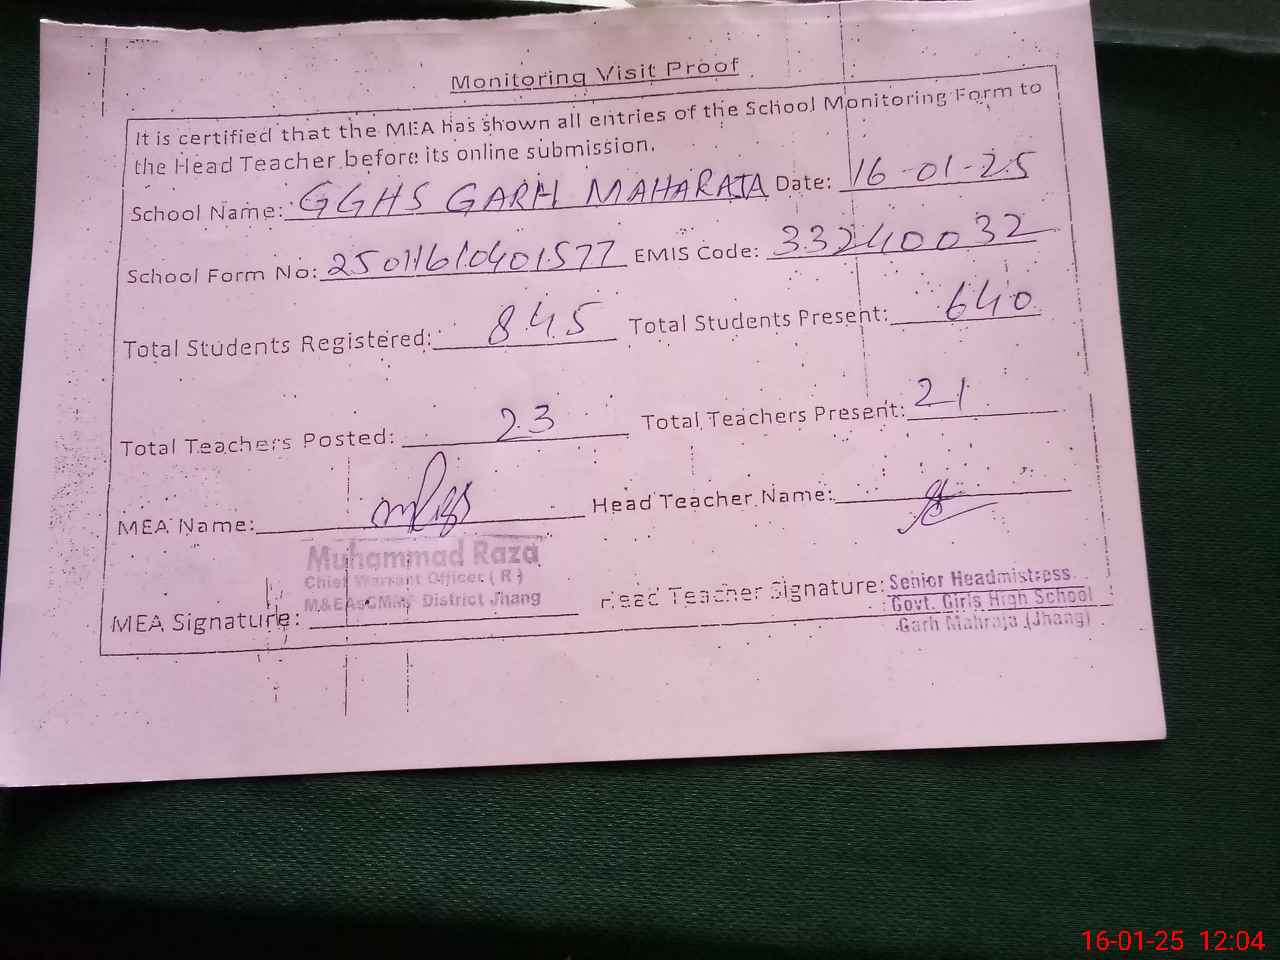 Monitoring Visit Proof
It is certified that the MEA has shown all entries of the School Monitoring Form to
the Head Teacher before its online submission.
School Name: GGHS GARH MAHARAJA Date: 16-01-25
School Form No: 25011610401577 EMIS Code: 33240032
Total Students Registered: 845 Total Students Present: 640
Total Teachers Posted: 23 Total Teachers Present: 21
MEA Name: Head Teacher Name:
Muhammad Raza
Chief Warrant Officer ( R )
M&EAs District Jhang
MEA Signature: Head Teacher Signature: Senior Headmistress
Govt. Girls High School
Garh Mahraja (Jhang)
16-01-25 12:04